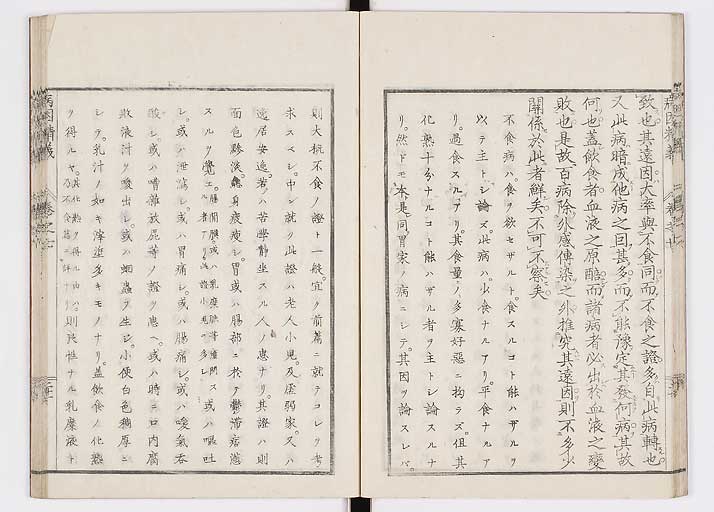 致也其遠因大率與不食同而不食之證多自此病轉也
又此病暗成他病之因甚多而不能豫定其發何病其故
何也蓋飲食者血液之原醅而諸病者必出於血液之變
敗也是故百病除外感傳染之外推究其遠因則不多少
關係於此者鮮矣不可不察矣
不食病ハ食ヲ欲セザルト食スルコト能ハザルヲ
以テ主トシ論ズ此病ハ少食ナルアリ平食ナルア
リ過食スルアリ其食量ノ多寡好惡ニ拘ラズ但其
化熟十分ナルコト能ハザル者ヲ主トシ論スルナ
リ然ドモ本是同胃家ノ病ニシテ其因ヲ論スレバ
則大抵不食ノ證ト一般宜ク前篇ニ就テコレヲ考
求スベシ中ン就ク此證ハ老人小兒及虛弱家又ハ
逸居安逸若クハ苦學靜坐スル人ノ患ナリ其證ハ則
面色黪淡身痩シ胃或ハ腸部ニ於テ鬱滯痞滿
スルヲ覺エ或ハ嘔吐
シ或ハ泄瀉シ或ハ胃痛シ或ハ腸痛シ或ハ噯氣呑
酸シ或ハ嘈雜放屁等ノ證ヲ患ヘ或ハ時ニ口内腐
敗液汁ヲ唾出シ或ハ蚘蟲ヲ生シ小便白色稠厚ニ
シテ乳汁ノ如キ滓埿多キモノナリ蓋飲食ノ化熟
ヲ得ルヤ則良性ナル乳糜液ト
病因精義 卷之七